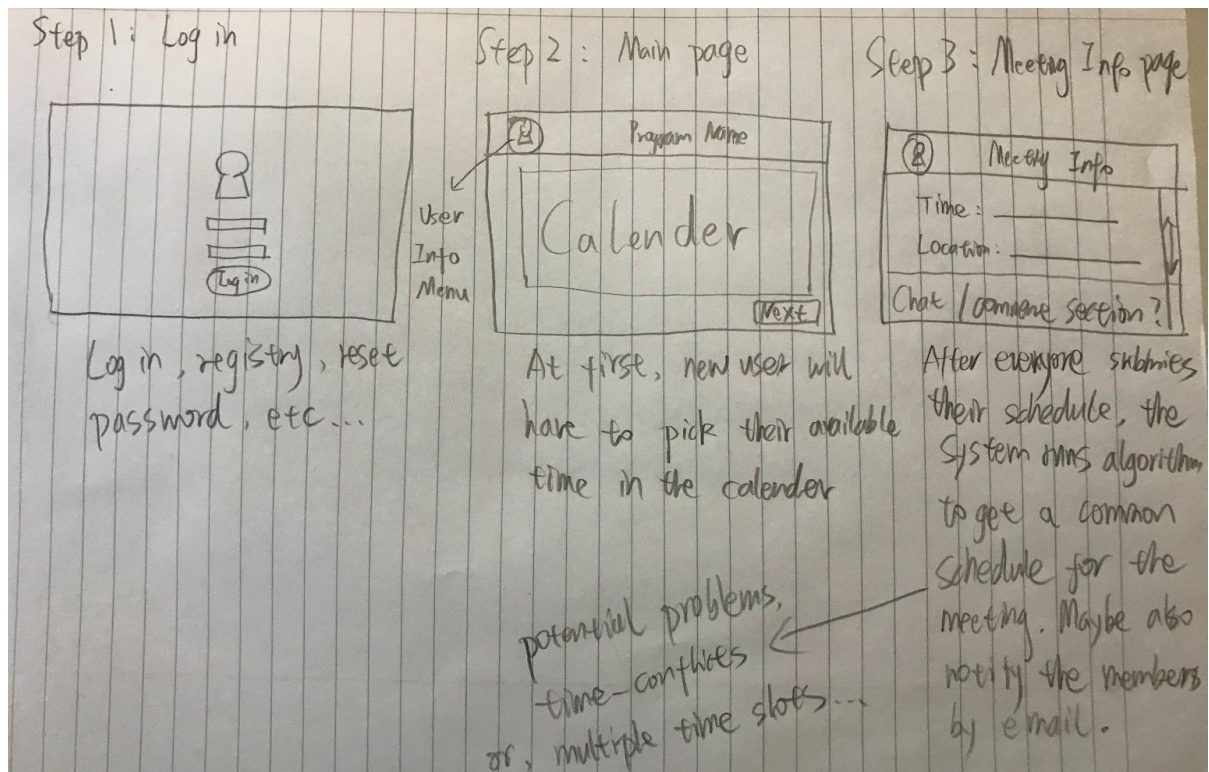 Step 1: Log in
Log in
Log in, registry, reset
password, etc...
Step 2: Main page
Program Name
User
Info
Menu
Calender
Next
At first, new user will
have to pick their available
time in the calender
potential problems,
time-conflices
or, multiple time slots...
Steep 3: Meeting Info page
Meeting Info
Time:
Location:
Chat / comment section?
After everyone submies
their schedule, the
system runs algorithm
to get a common
schedule for the
meeting. Maybe also
notify the members
by email.